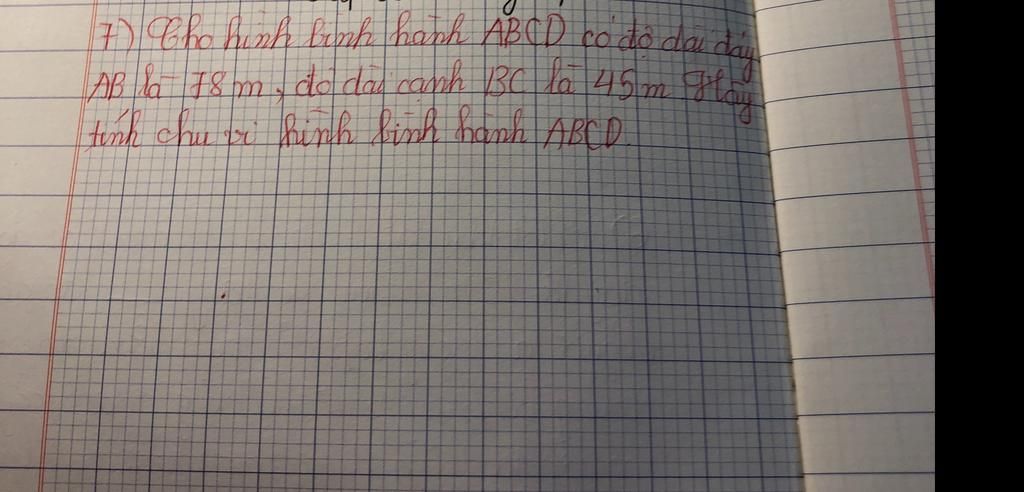 7) Cho hình bình hành ABCD có độ dài đáy
AB là 78 m, độ dài cạnh BC là 45 m Hãy
tính chu vi hình bình hành ABCD.